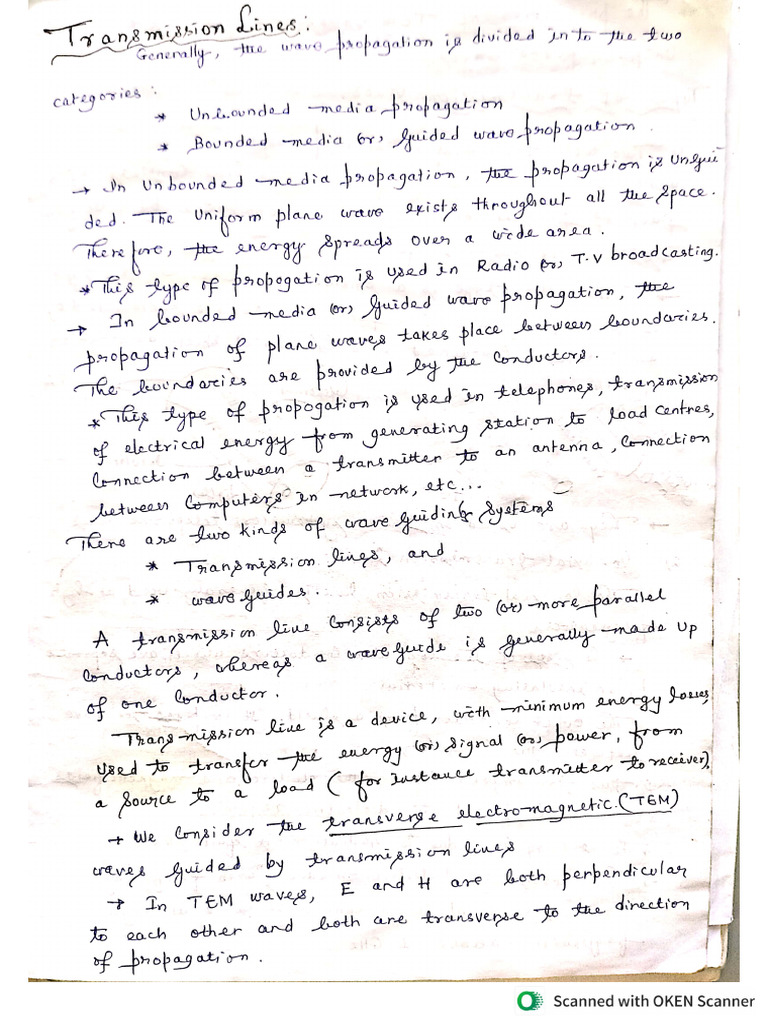 Transmission Lines:
Generally, the wave propagation is divided in to the two
categories:
* Unbounded media propagation
* Bounded media (or) guided wave propagation.
→ In Unbounded media propagation, the propagation is ungui
ded. The Uniform plane wave exists throughout all the space.
Therefore, the energy spreads over a wide area.
* This type of propogation is used in Radio (or) T.V broadcasting.
→ In bounded media (or) guided wave propagation, the
propagation of plane waves takes place between boundaries.
The boundaries are provided by the conductors.
* This type of propogation is used in telephones, transmission
of electrical energy from generating station to load centres,
Connection between a transmitter to an antenna, connection
between computers in network, etc...
There are two kinds of wave guiding systems
* Transmission lines, and
* wave guides.
A transmission line consists of two (or) more parallel
conductors, whereas a waveguide is generally made up
of one conductor.
Transmission line is a device, with minimum energy losses,
used to transfer the energy (or) signal (or) power, from
a source to a load (for instance transmitter to receiver).
→ We consider the transverse electromagnetic.(TEM)
waves guided by transmission lines
→ In TEM waves, E and H are both perpendicular
to each other and both are transverse to the direction
of propagation.
Scanned with OKEN Scanner